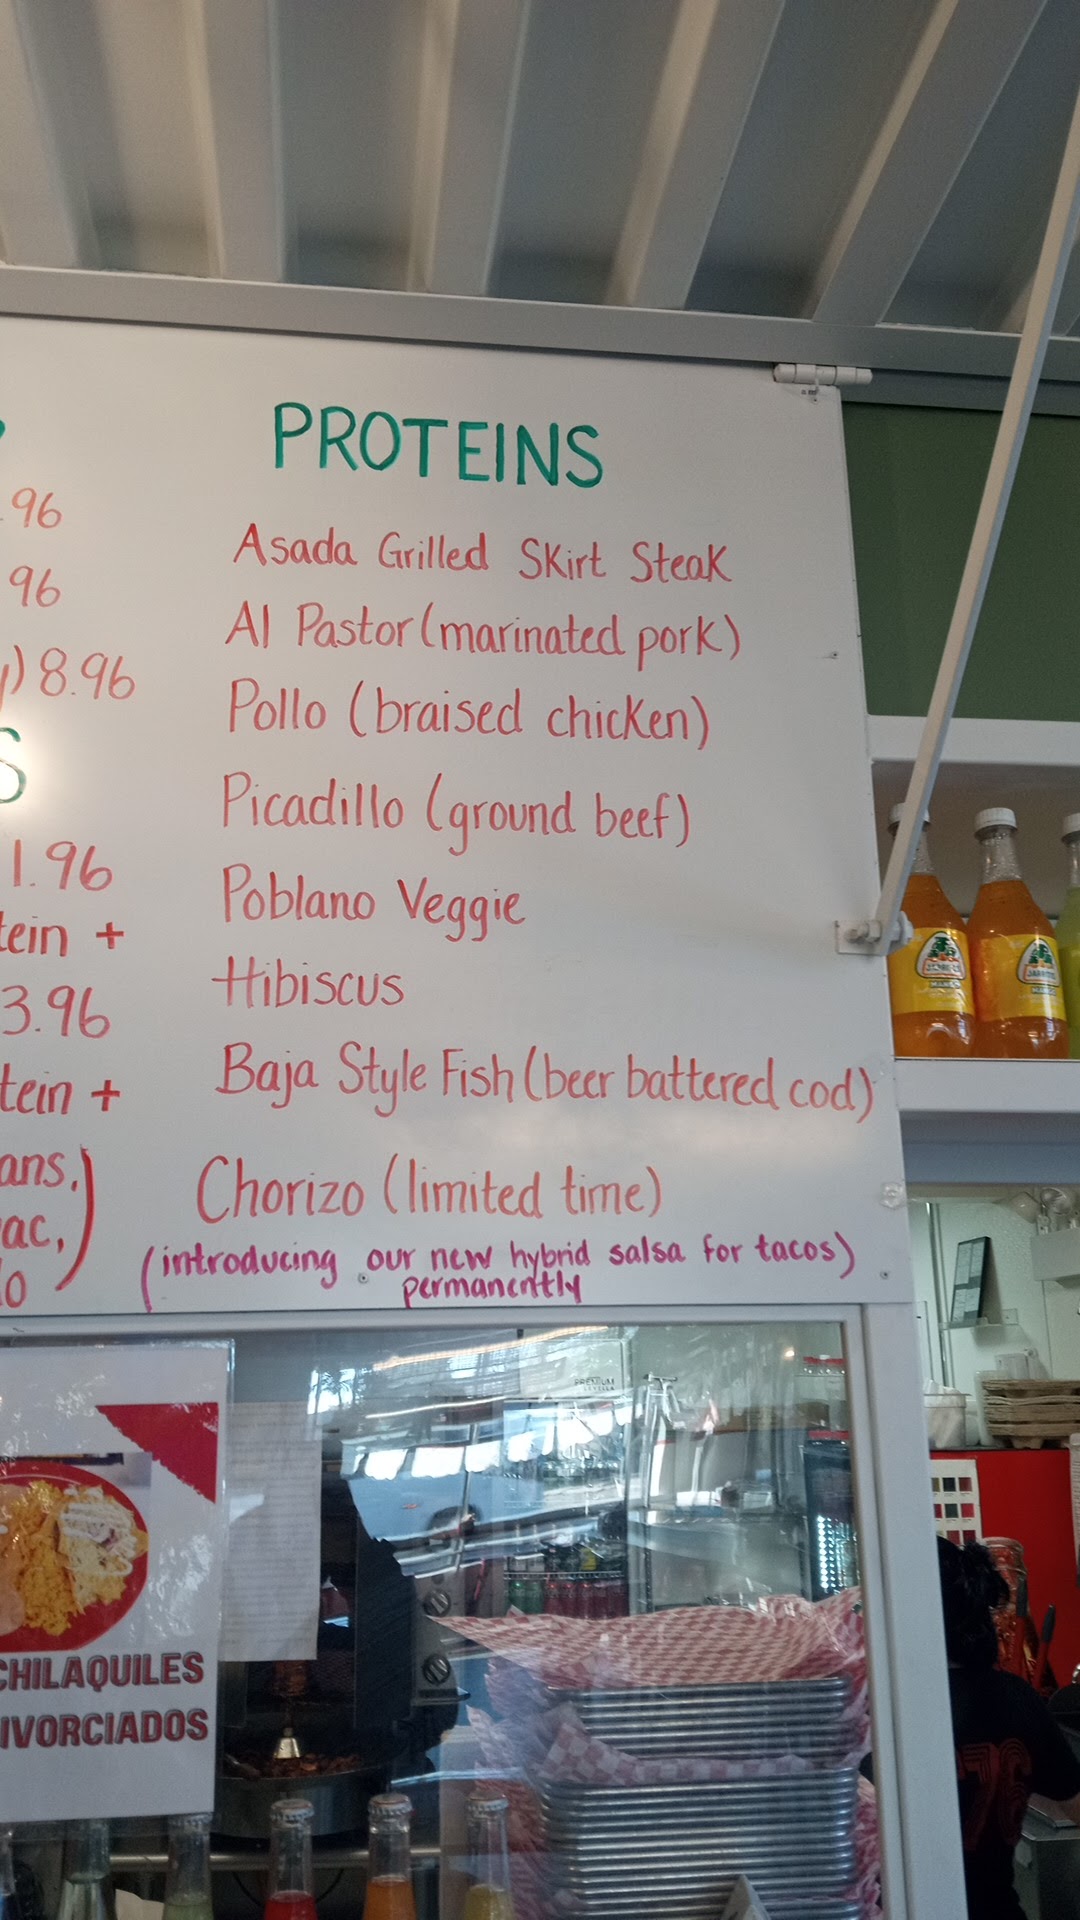 PROTEINS
.96
96
Asada Grilled Skirt Steak
Al Pastor (marinated pork)
) 8.96
Pollo (braised chicken)
S
Picadillo (ground beef)
1.96
Poblano Veggie
tein +
Hibiscus
3.96
Baja Style Fish (beer battered cod)
tein +
ans,)
Chorizo (limited time)
ac,
(introducing our new hybrid salsa for tacos)
permanently
lo
JARRITOS
MANGO
JARRITOS
MANGO
PREMIUM
CHILAQUILES
IVORCIADOS
76